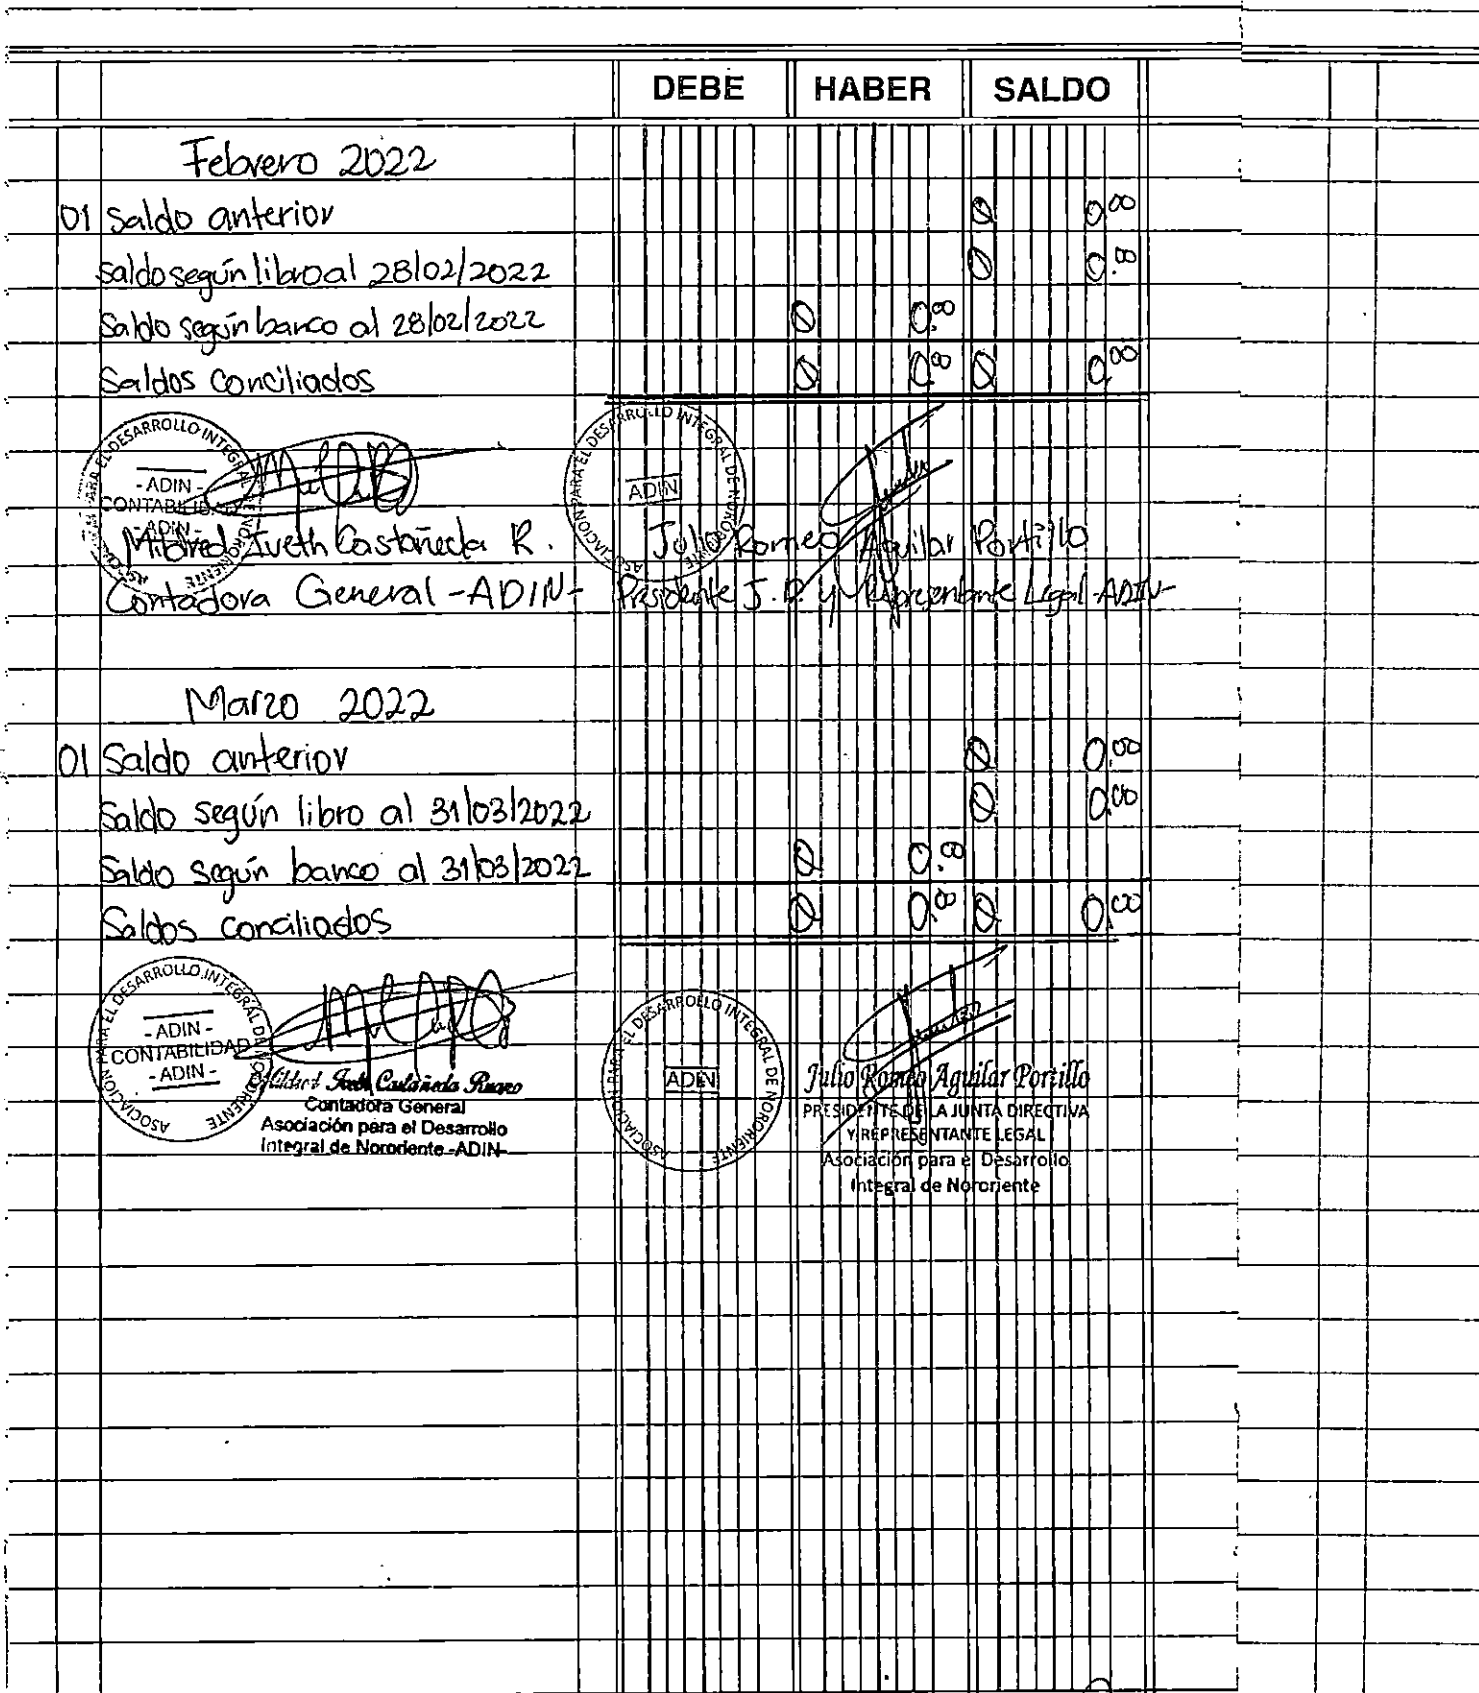 DEBE HABER SALDO
Febrero 2022
01 Saldo anterior Q 0.00
Saldo según libro al 28/02/2022 Q 0.00
Saldo según banco al 28/02/2022 Q 0.00
Saldos conciliados Q 0.00 Q 0.00
ASOCIACIÓN PARA EL DESARROLLO INTEGRAL DE NORORIENTE
- ADIN -
CONTABILIDAD
- ADIN -
ASOCIACIÓN PARA EL DESARROLLO INTEGRAL DE NORORIENTE
ADIN
Mildred Iveth Castañeda R. Julio Romeo Aguilar Portillo
Contadora General -ADIN- Presidente J.D. y Representante Legal -ADIN-
Marzo 2022
01 Saldo anterior Q 0.00
Saldo según libro al 31/03/2022 Q 0.00
Saldo según banco al 31/03/2022 Q 0.00
Saldos conciliados Q 0.00 Q 0.00
ASOCIACIÓN PARA EL DESARROLLO INTEGRAL DE NORORIENTE
- ADIN -
CONTABILIDAD
- ADIN -
Mildred Castañeda Ruano
Contadora General
Asociación para el Desarrollo
Integral de Nororiente -ADIN-
ASOCIACIÓN PARA EL DESARROLLO INTEGRAL DE NORORIENTE
ADIN
Julio Romeo Aguilar Portillo
PRESIDENTE DE LA JUNTA DIRECTIVA
Y REPRESENTANTE LEGAL
Asociación para el Desarrollo
Integral de Nororiente